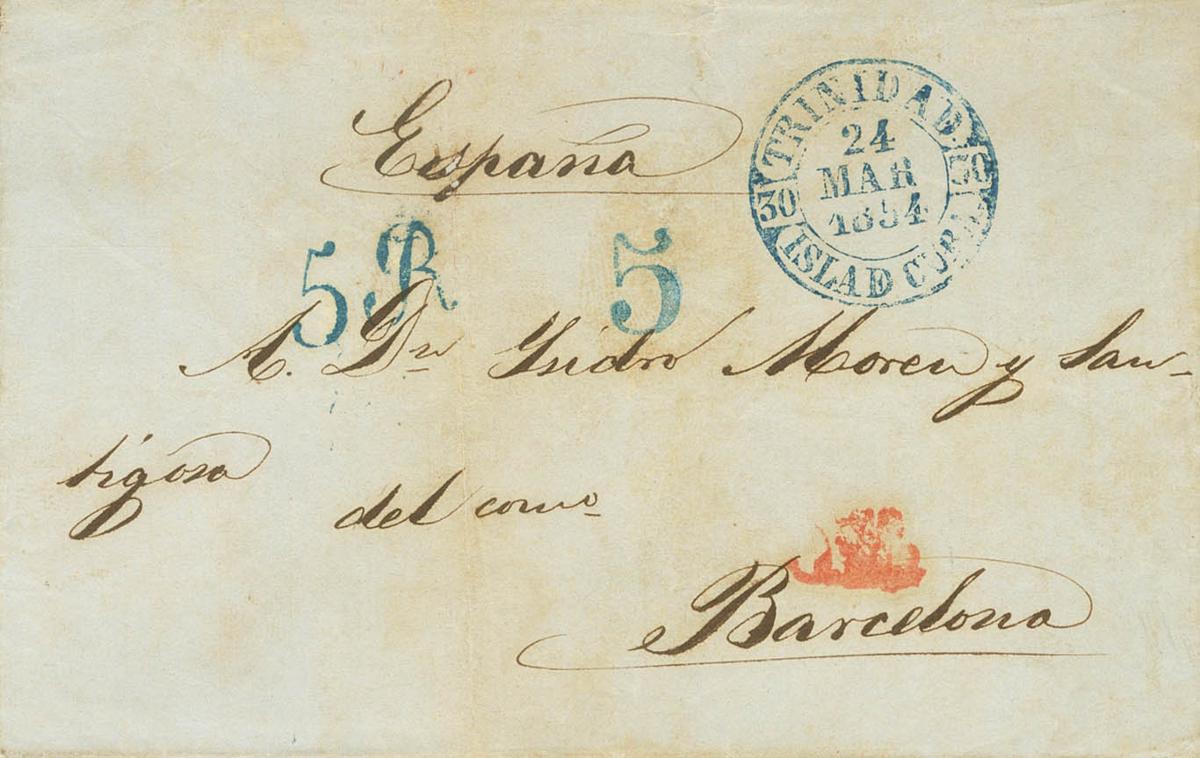 España
TRINIDAD.
24
MAR
1854
30
30
ISLA D CUBA.
5 R
5
A. Dn Isidro Moreu y San-
tigosa
del como
Barcelona